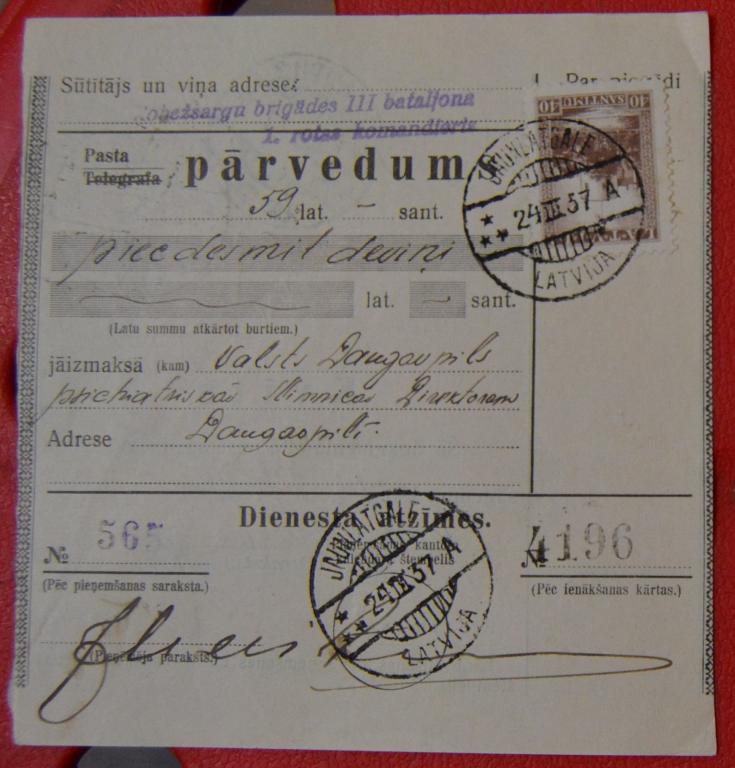 Sūtītājs un viņa adrese:
Robežsargu brigādes III bataljona
1. rotas komandieris
Pasta
Telegrafa
pārvedums
59 lat. — sant.
piecdesmit deviņi
lat. — sant.
(Latu summu atkārtot burtiem.)
jāizmaksā (kam) Valsts Daugavpils
psichiatriskās slimnīcas Direktoram
Adrese Daugavpilī.
40 SANTIMI 40
LATVIJA
JAUNLATGALE
24 III 37 A
LATVIJA
Dienesta atzīmes.
№ 565
(Pēc pieņemšanas saraksta.)
kalendāra štempelis
JAUNLATGALE
24 III 37 A
LATVIJA
№ 4196
(Pēc ienākšanas kārtas.)
(Pieņēmēja paraksts.)